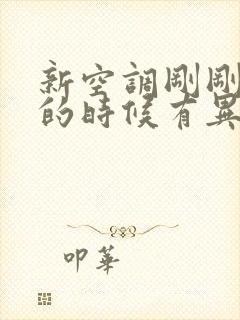 新空調剛剛
的時候有異
叩華